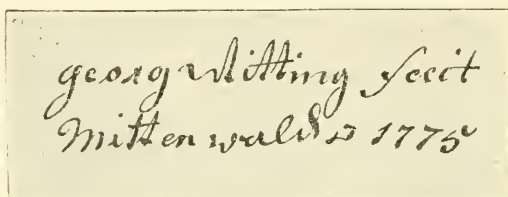 georg Witting fecit
Mittenwald 1775